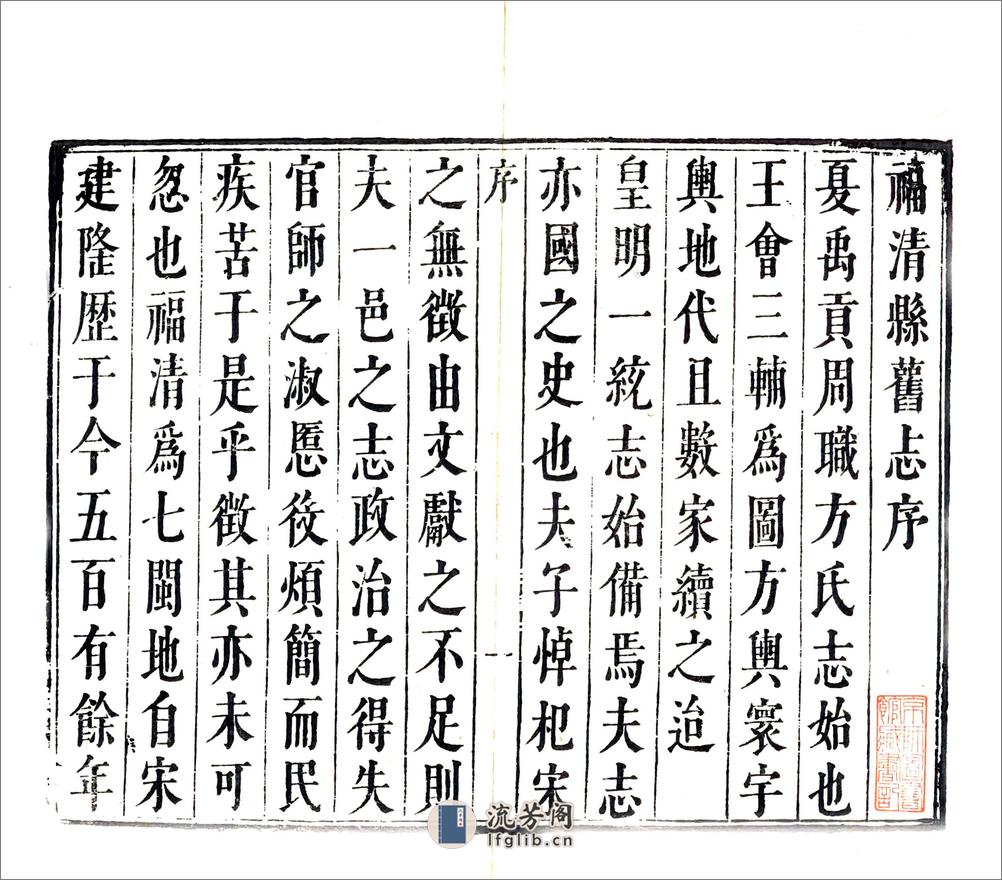 福清縣舊志序
夏禹貢周職方氏志始也
王會三輔爲圖方輿寰宇
輿地代且數家續之迨
皇明一統志始備焉夫志
亦國之史也夫子悼杞宋
序
一
之無徴由文獻之不足則
夫一邑之志政治之得失
官師之淑慝役煩簡而民
疾苦于是乎徴其亦未可
忽也福清爲七閩地自宋
建隆歷于今五百有餘年
京師圖書
館藏書記
流芳阁
lfglib.cn